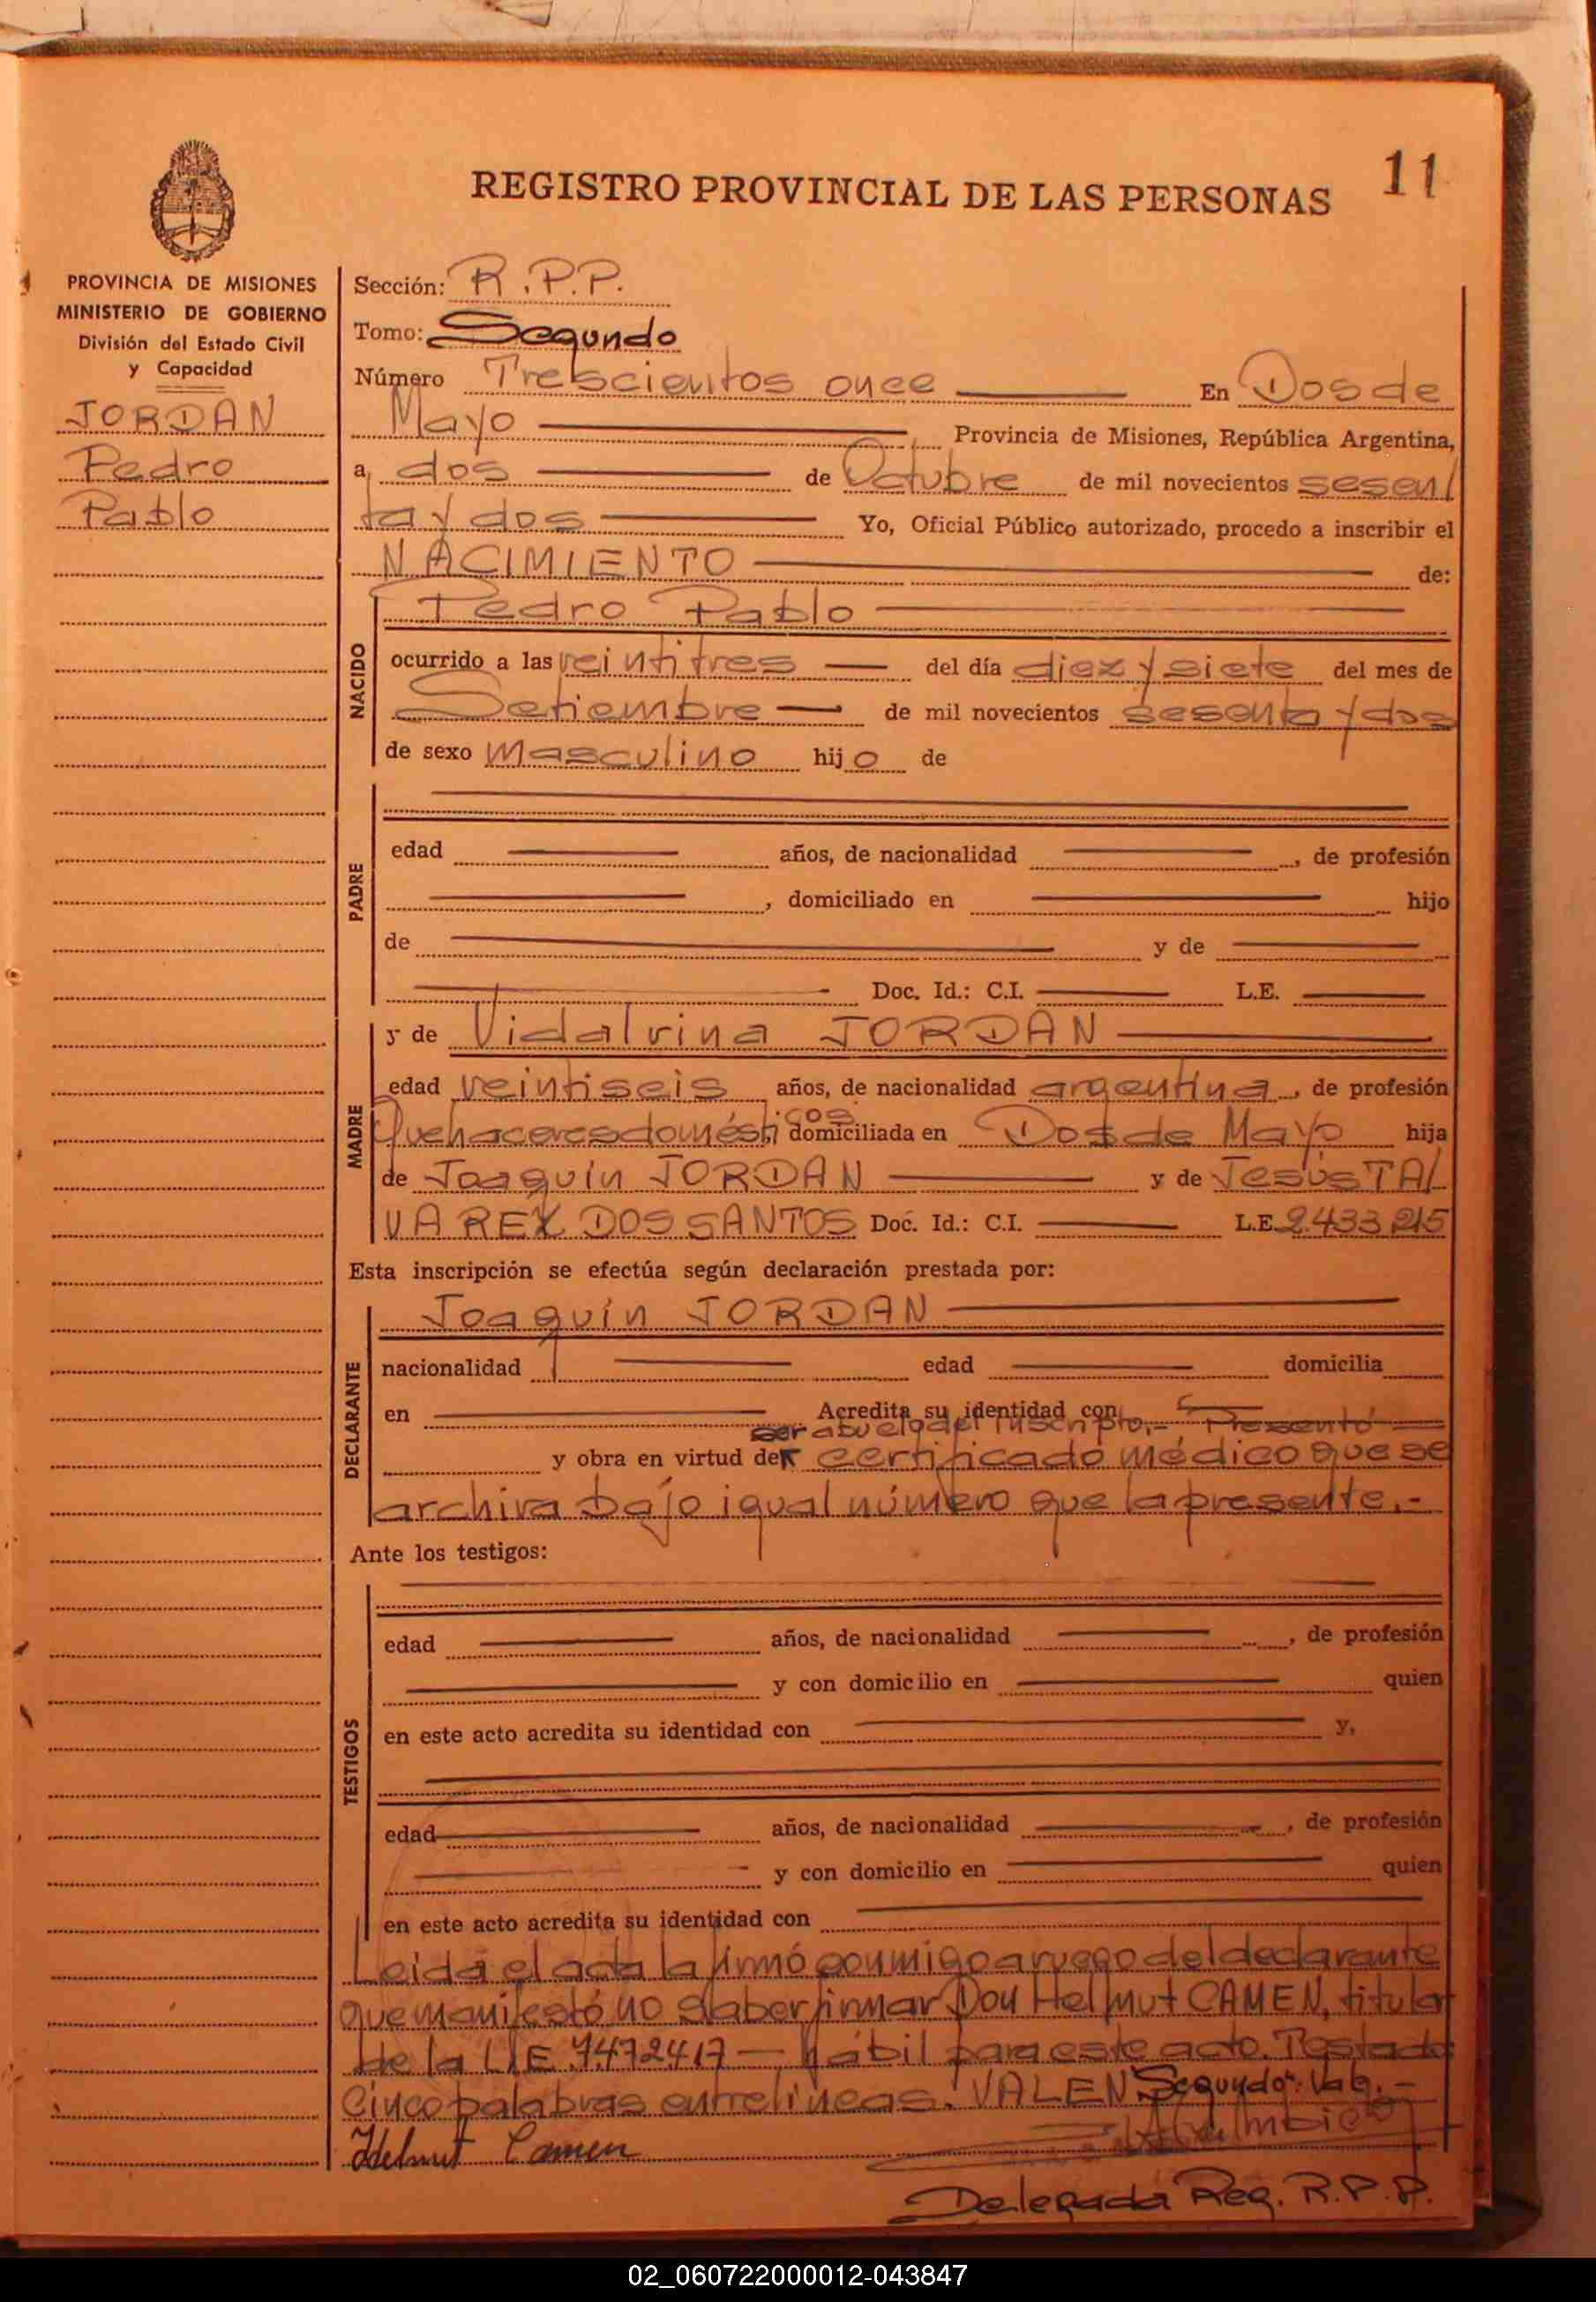 11
REGISTRO PROVINCIAL DE LAS PERSONAS
PROVINCIA DE MISIONES
MINISTERIO DE GOBIERNO
División del Estado Civil
y Capacidad
JORDAN
Pedro
Pablo
Sección: R.P.P.
Tomo: Segundo
Número Trescientos once En Dos de
Mayo Provincia de Misiones, República Argentina,
a dos de Octubre de mil novecientos sesen/
ta y dos Yo, Oficial Público autorizado, procedo a inscribir el
NACIMIENTO de:
NACIDO
Pedro Pablo
ocurrido a las veintitres del día diez y siete del mes de
Setiembre de mil novecientos sesenta y dos
de sexo masculino hijo de
PADRE
edad años, de nacionalidad , de profesión
, domiciliado en hijo
de y de
Doc. Id.: C.I. L.E.
MADRE
y de Vidalvina JORDAN
edad veintiseis años, de nacionalidad argentina, de profesión
Quehaceres domésticos domiciliada en Dos de Mayo hija
de Joaquín JORDAN y de Jesús TAL
VAREX DOS SANTOS Doc. Id.: C.I. L.E. 2.433.215
Esta inscripción se efectúa según declaración prestada por:
DECLARANTE
Joaquín JORDAN
nacionalidad edad domicilia
en Acredita su identidad con
ser abuelo del inscripto.- Presentó
y obra en virtud de certificado médico que se
archiva bajo igual número que la presente.-
Ante los testigos:
TESTIGOS
edad años, de nacionalidad , de profesión
y con domicilio en quien
en este acto acredita su identidad con y,
edad años, de nacionalidad , de profesión
y con domicilio en quien
en este acto acredita su identidad con
Leida el acta la firmó conmigo a ruego del declarante
que manifestó no saber firmar Don Helmut CAMEN, titular
de la L.E 7.472.417 — hábil para este acto. Testado
Cinco palabras entrelíneas. VALEN Segundo: Vale.-
Helmut Camen
Delegada Reg. R.P.P.
02_060722000012-043847